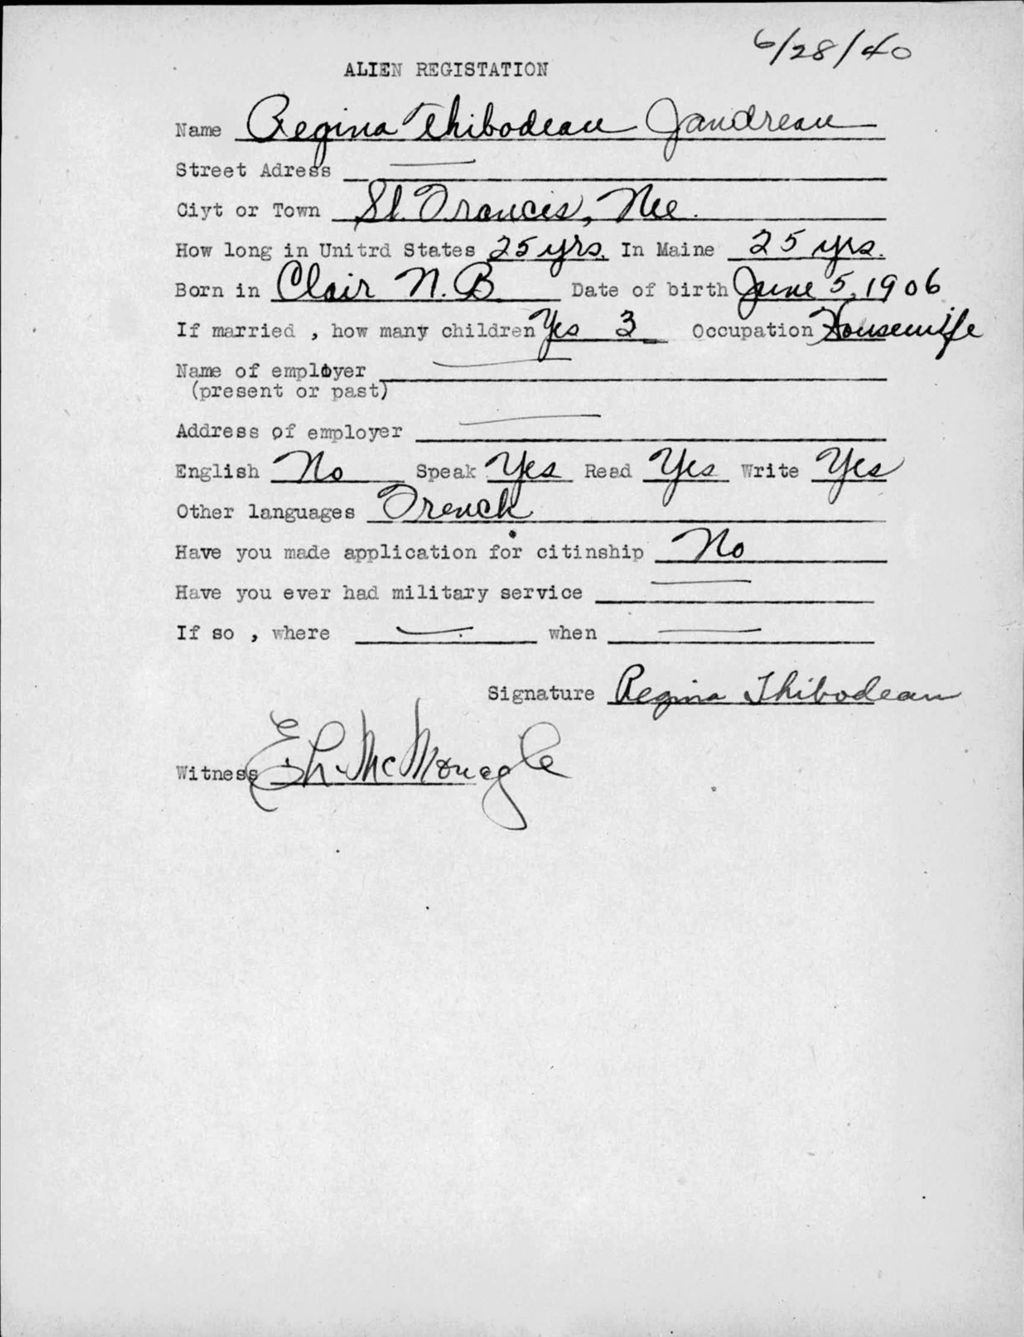 6/28/40
ALIEN REGISTATION
Name Regina Thibodeau Jandreau
Street Adress —
Ciyt or Town St Francis, Me.
How long in Unitrd States 25 yrs. In Maine 25 yrs.
Born in Clair N.B Date of birth June 5, 1906
If married , how many children Yes 3 Occupation Housewife
Name of employer —
(present or past)
Address of employer —
English No Speak Yes Read Yes Write Yes
Other languages French
Have you made application for citinship No
Have you ever had military service —
If so , where — when —
Signature Regina Thibodeau
Witness E L McMonagle